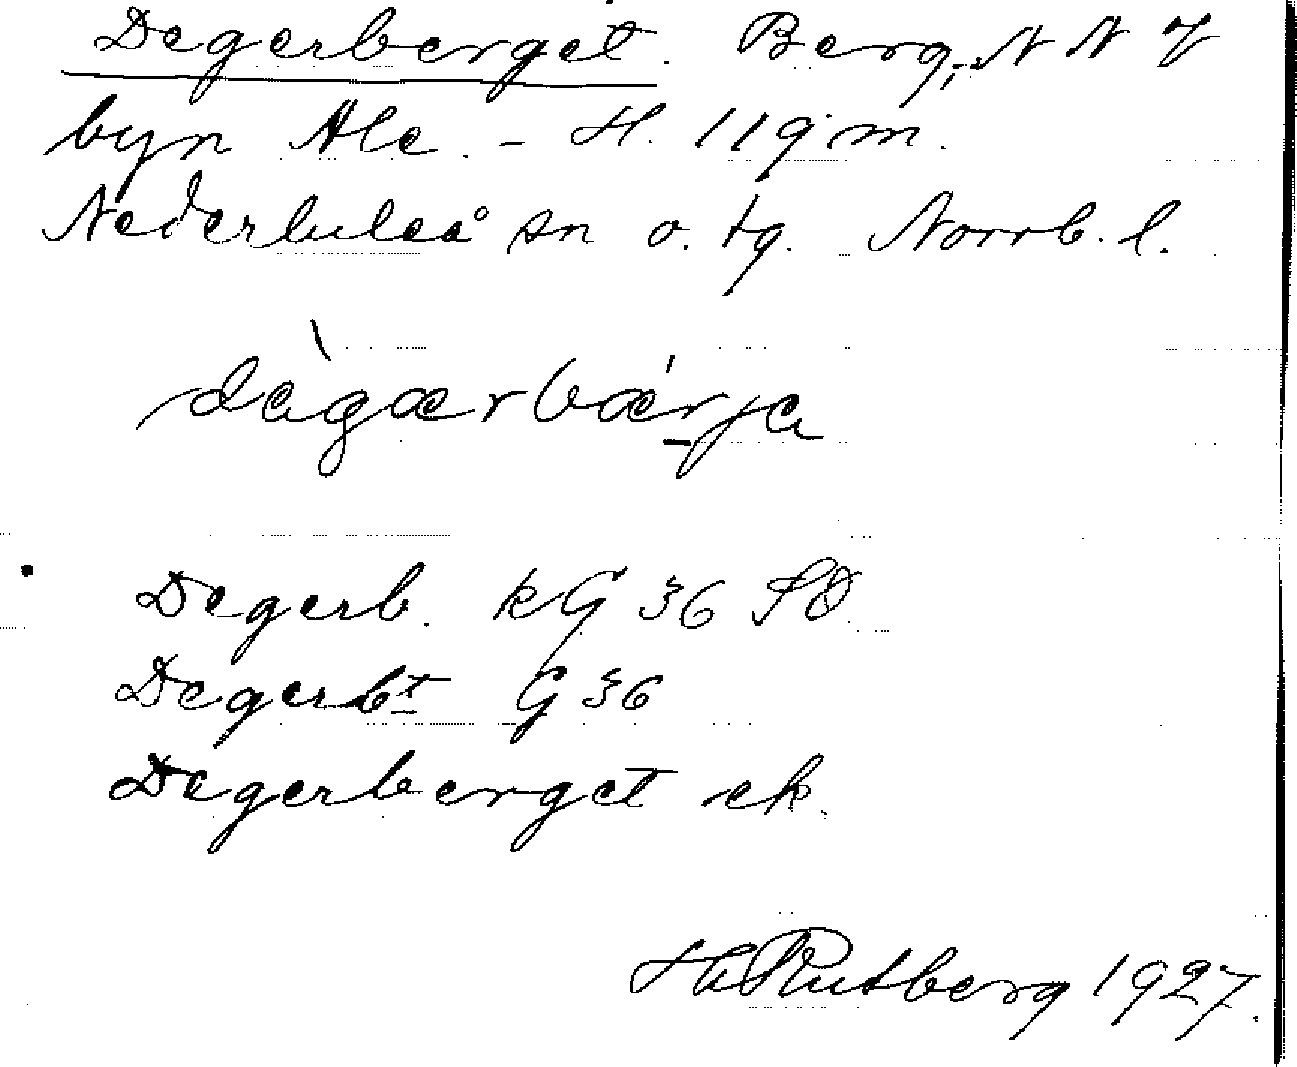 Degerberget. Berg, N N V
byn Ale. - H. 119 m.
Nederluleå sn o. tg. Norrb. l.
dègærbǽrja
Degerb. kG 36 SO
Degerbt G 36
Degerberget ek.
H. Rutberg 1927.